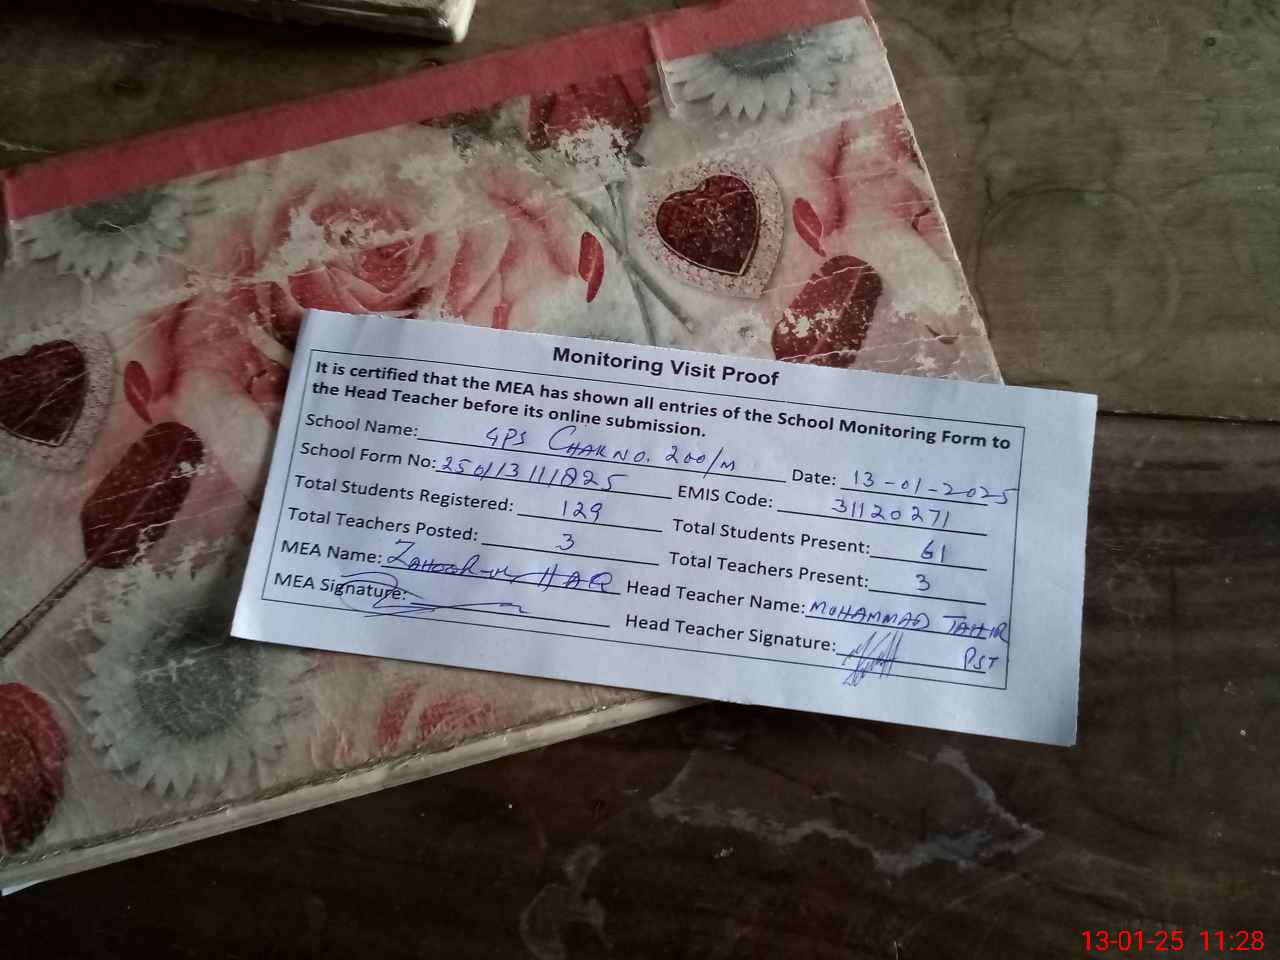 Monitoring Visit Proof
It is certified that the MEA has shown all entries of the School Monitoring Form to
the Head Teacher before its online submission.
School Name: GPS CHAK NO. 200/M Date: 13-01-2025
School Form No: 250113111825 EMIS Code: 31120271
Total Students Registered: 129 Total Students Present: 61
Total Teachers Posted: 3 Total Teachers Present: 3
MEA Name: ZAHOOR-ul-HAQ Head Teacher Name: MOHAMMAD TAHIR
MEA Signature: Head Teacher Signature: PST
13-01-25 11:28